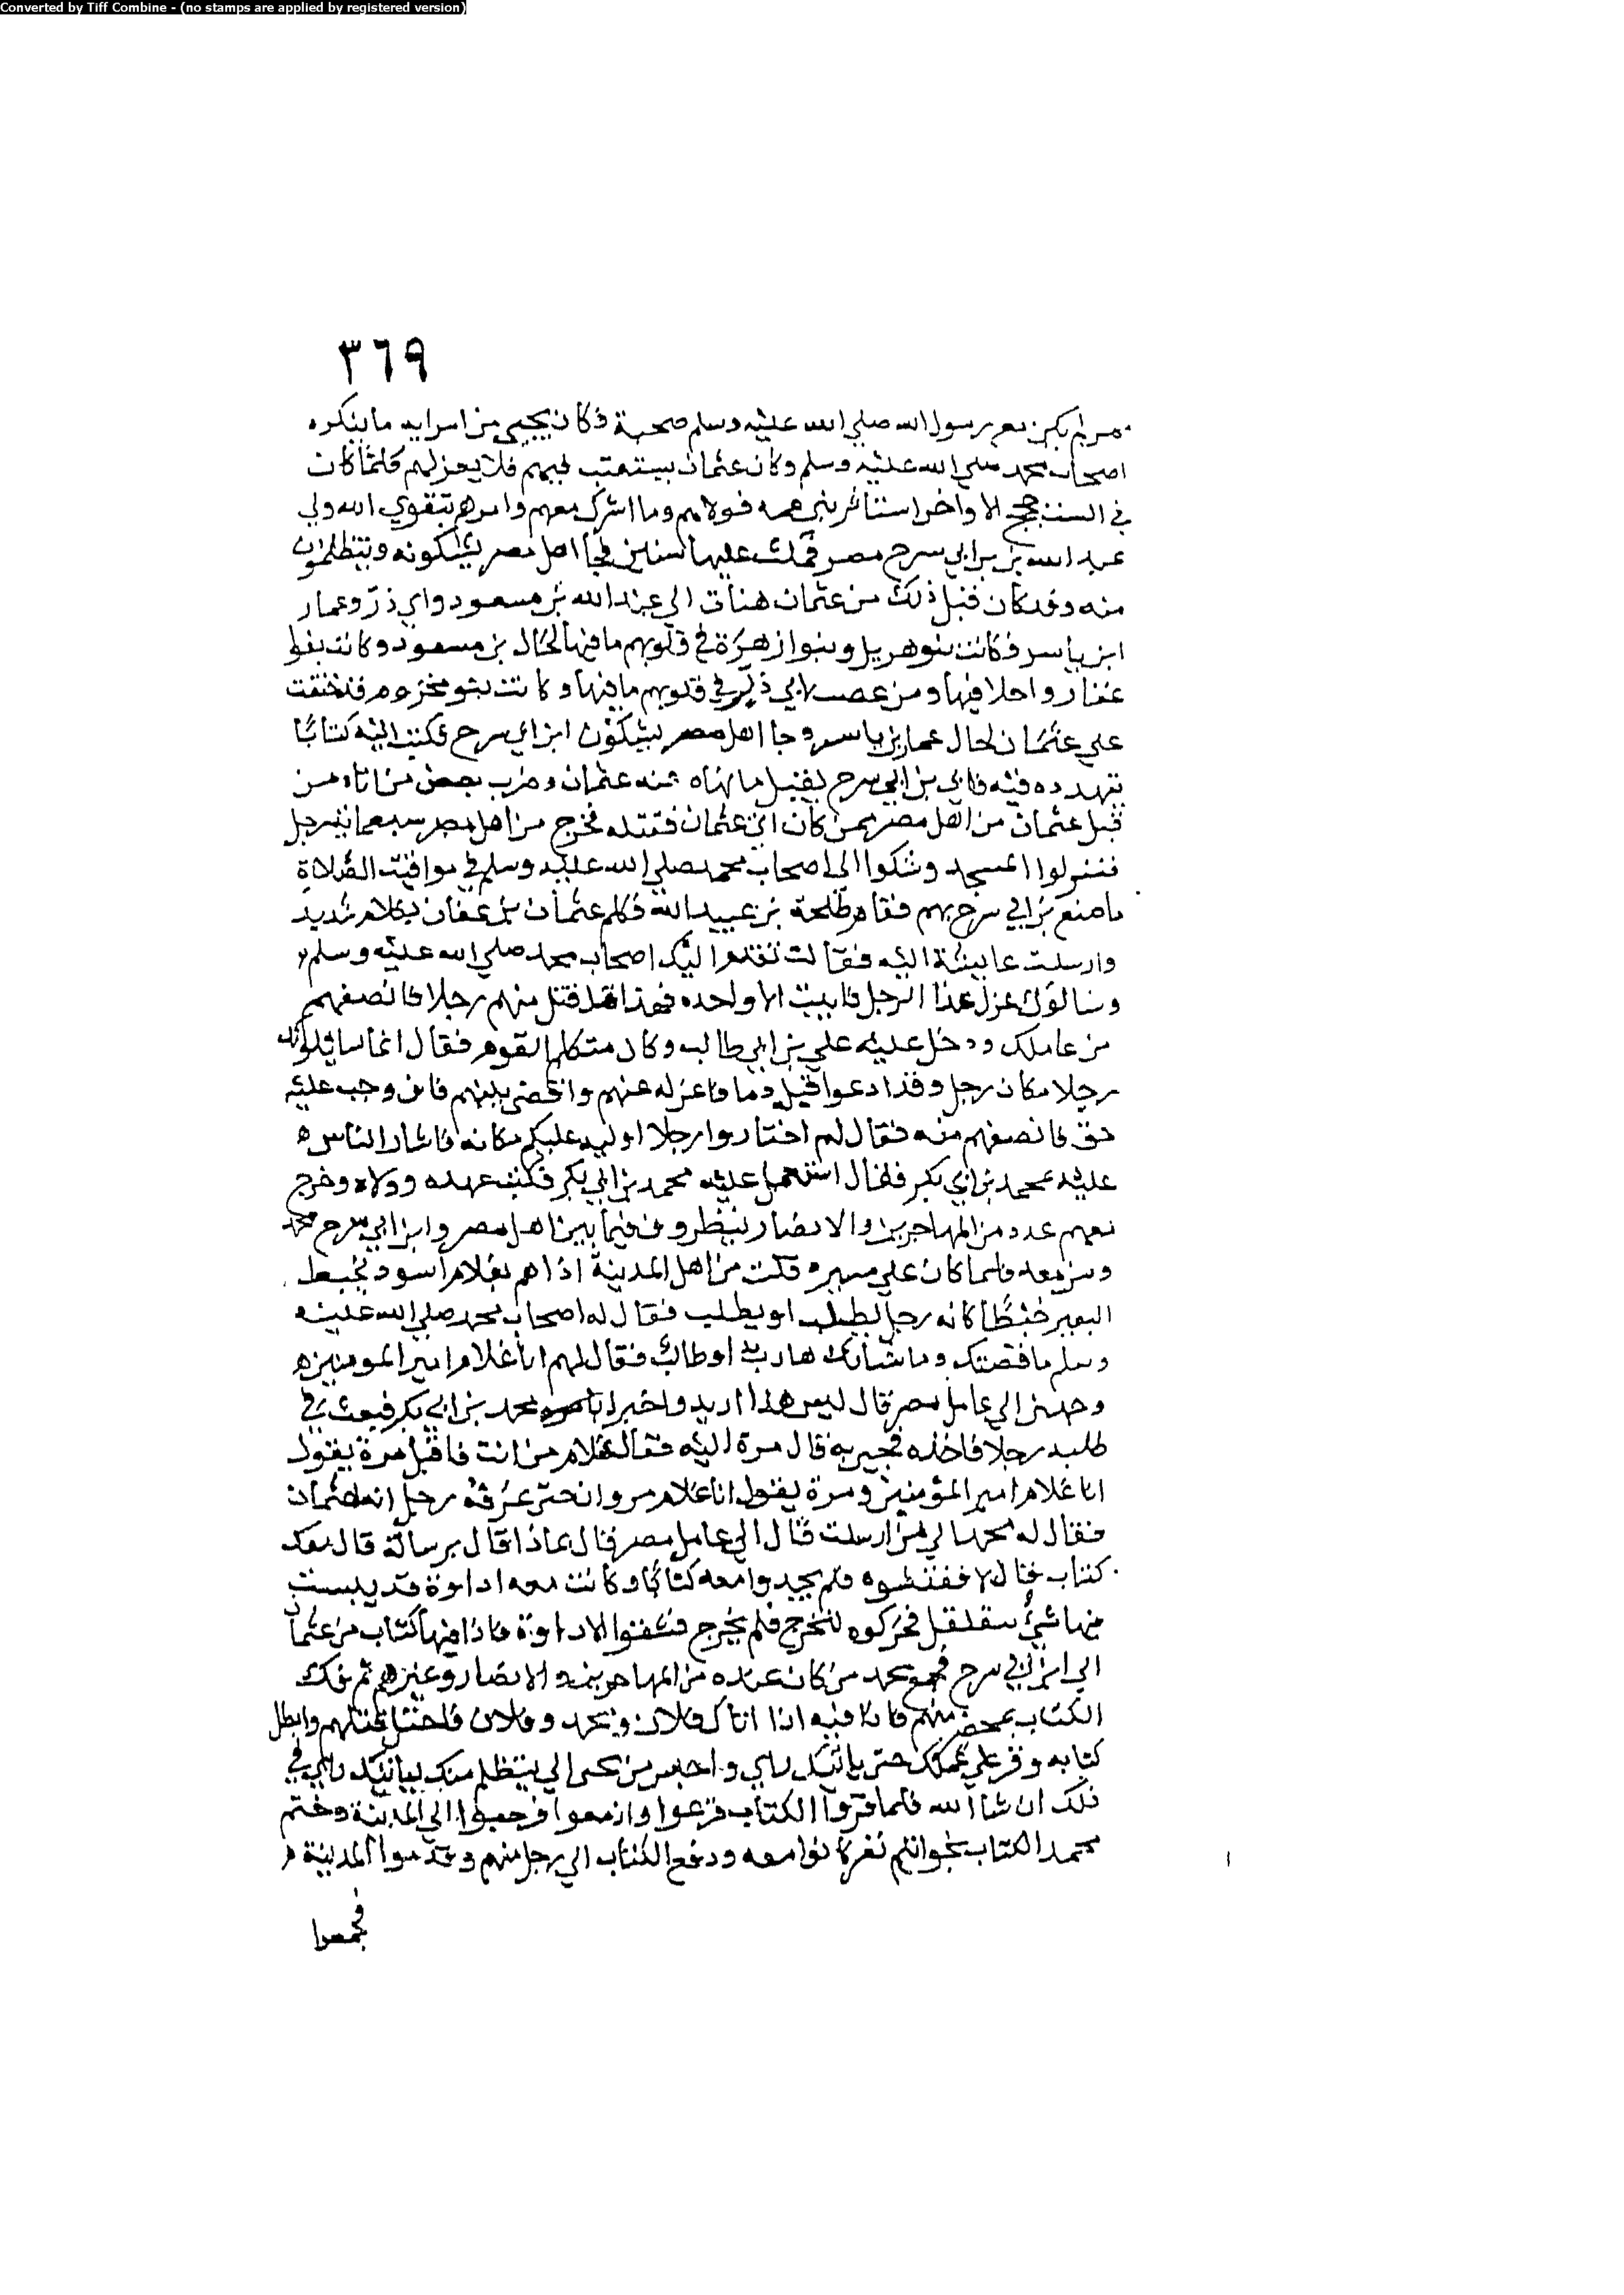 Converted by Tiff Combine - (no stamps are applied by registered version)
٣٦٩
ممن لم يكن مع رسول الله صلي الله عليه وسلم صحبة فكان يجيي من امرايه ما ينكره
اصحاب محمد صلي الله عليه وسلم وكان عثمان يستعتب فيهم فلا يعزلهم فلما كان
في الست حجج الاواخر استاثر بني عمه فولاهم وما اشرك معهم وامرهم بتقوي الله ولي
عبد الله بن ابي سرح مصر فمكث عليها سنين فجا اهل مصر يشكونه ويتظلمون
منه وقد كان قبل ذلك من عثمان هنات الي عبد الله بن مسعود وابي ذر وعمار
ابن ياسر فكانت بنو هديل وبنوا زهرة في قلوبهم ما فيها لحال بن مسعود وكانت بنوا
غفار واحلافها ومن غضب لابي ذر في قلوبهم ما فيها وكانت بنو مخزوم قد حنقت
علي عثمان لحال عمار بن ياسر وجا اهل مصر يشكون ابن ابي سرح فكتب اليه كتابا
يتهدده فيه فابي بن ابي سرح يقبل ما نهاه عنه عثمان وضرب بعض من اتاه من
قبل عثمان من اهل مصر ممن كان اتي عثمان فقتله فخرج من اهل مصر سبعماية رجل
فنزلوا المسجد وشكوا الي اصحاب محمد صلي الله عليه وسلم في مواقيت الصلاة
ما صنع بن ابي سرح بهم فقام طلحة بن عبيد الله فكلم عثمان بن عفان بكلام شديد
وارسلت عايشة اليه فقالت تقدم اليك اصحاب محمد صلي الله عليه وسلم
وسالوك عزل هذا الرجل فابيت الا واحده فهذا قد قتل منهم رجلا فانصفهم
من عاملك ودخل عليه علي بن ابي طالب وكان متكلم القوم فقال انما سايلوك
رجلا مكان رجل وقد ادعوا قبله دما فاعزله عنهم واقضي بينهم فان وجب عليه
حق فانصفهم منه فقال لهم اختاروا رجلا اوليه عليكم مكانه فاشار الناس
عليه بمحمد بن ابي بكر فقال استعمل عليه محمد بن ابي بكر فكتب عهده وولاه وخرج
معهم عدد من المهاجرين والانصار ينظرون فيما بين اهل مصر وابن ابي سرح محمد
ومن معه فلما كان علي مسيره ثلث من اهل المدينة اذا هم بغلام اسود يخبط
البعير خبطا كانه رجل يطلب او يطلب فقال له اصحاب محمد صلي الله عليه
وسلم ما قصتك وما شانك هارب او طالب فقال لهم انا غلام امير المومنين
وجهني الي عامل مصر قال ليس هذا اريد واخبر بامره محمد بن ابي بكر فبعث في
طلبه رجلا فاخذه فجي به قال مرة اليه فقال غلام من انت فاقبل مرة يقول
انا غلام امير المؤمنين ومرة يقول انا غلام مروان حتي عرفه رجل انه لعثمان
فقال له محمد الي من ارسلت قال الي عامل مصر قال بماذا قال برسالة قال معك
كتاب قال لا ففتشوه فلم يجدوا معه كتابا وكانت معه اداوة قد يبست
فيها شئ يتقلقل فحركوه ليخرج فلم يخرج فشقوا الاداوة فاذا فيها كتاب من عثمان
الي ابن ابي سرح فجمع محمد من كان عنده من المهاجرين والانصار وغيرهم ثم فك
الكتاب بمحضر منهم فاذا فيه اذا اتاك فلان ومحمد وفلان فاحتل لقتلهم وابطل
كتابه وقر علي عملك حتي ياتيك رايي واحبس من يجي الي يتظلم منك لياتيك رايي في
ذلك ان شا الله فلما قروا الكتاب فزعوا وازمعوا فرجعوا الي المدينة وختم
محمد الكتاب بخواتيم نفر كانوا معه ودفع الكتاب الي رجل منهم وقدموا المدينة
فجمعوا